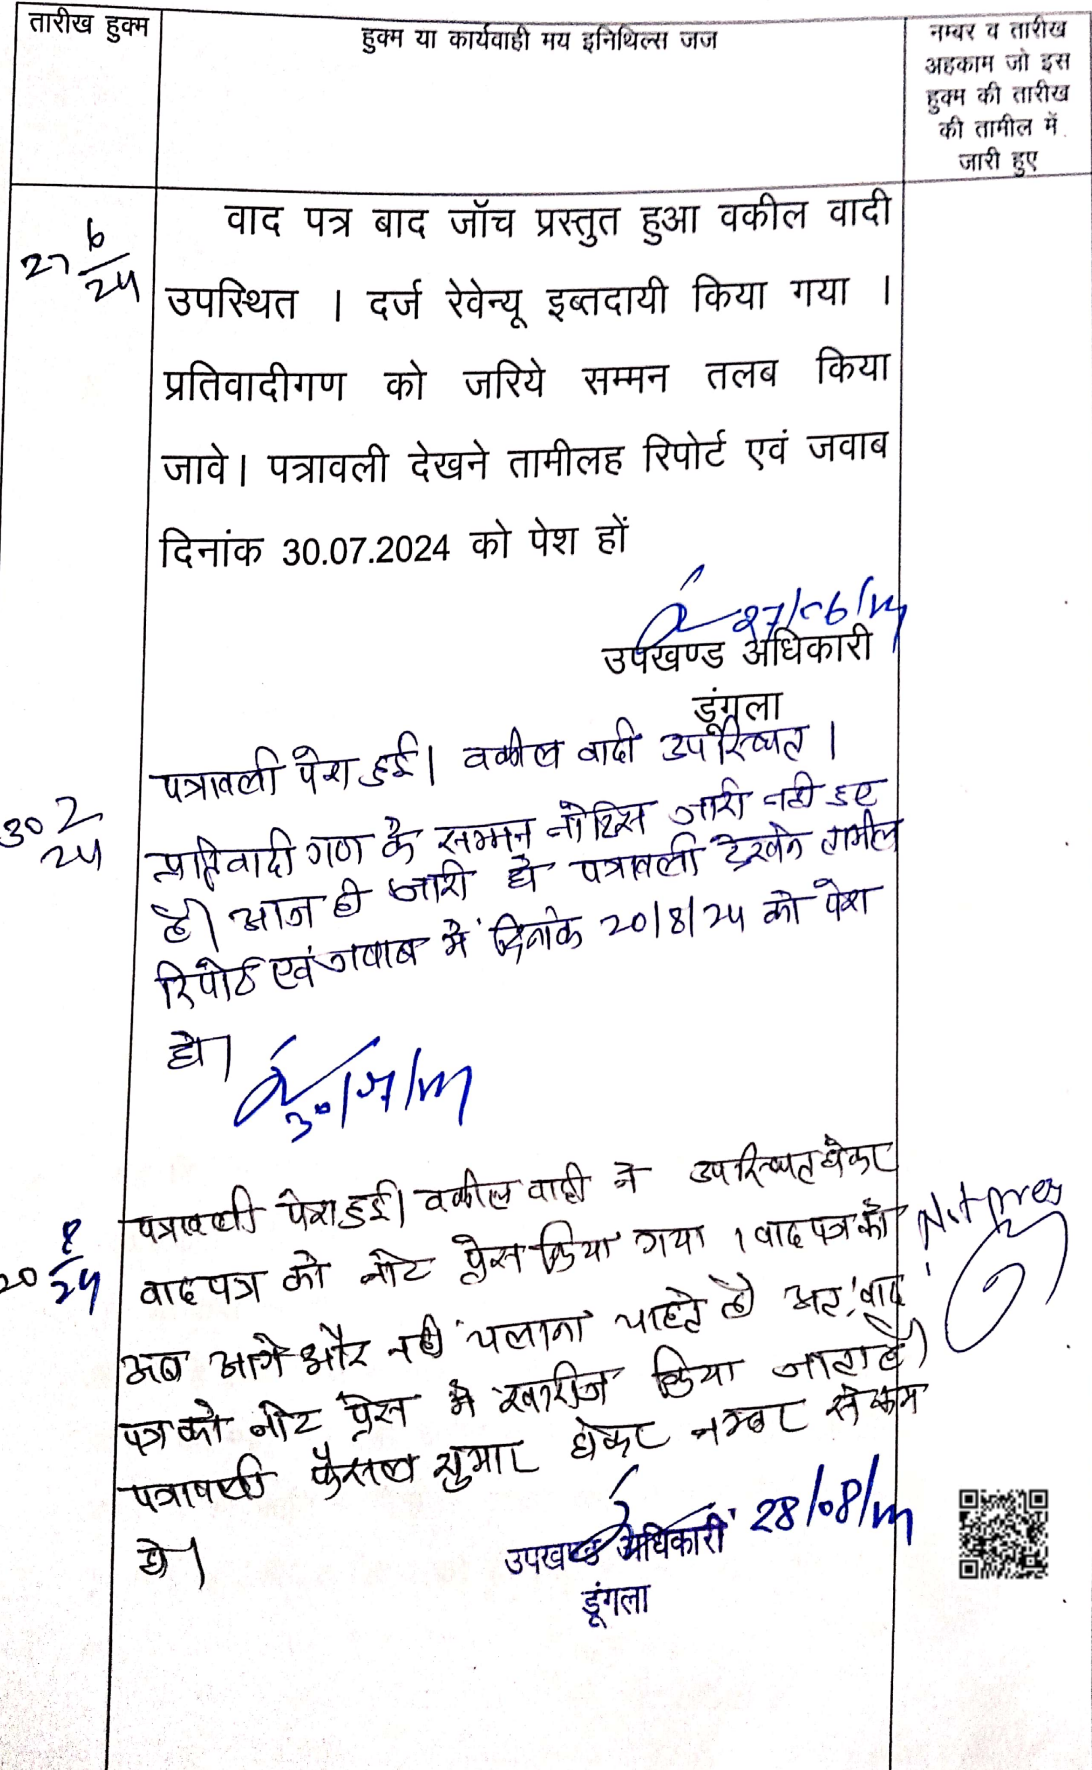 तारीख हुक्म
हुक्म या कार्यवाही मय इनिथिल्स जज
नम्बर व तारीख
अहकाम जो इस
हुक्म की तारीख
की तामील में
जारी हुए
27 6/24
वाद पत्र बाद जॉच प्रस्तुत हुआ वकील वादी
उपस्थित । दर्ज रेवेन्यू इब्तदायी किया गया ।
प्रतिवादीगण को जरिये सम्मन तलब किया
जावे। पत्रावली देखने तामीलह रिपोर्ट एवं जवाब
दिनांक 30.07.2024 को पेश हों
27/06/24
उपखण्ड अधिकारी
डूंगला
30 7/24
पत्रावली पेश हुई। वकील वादी उपस्थित।
प्रतिवादी गण के सम्मन नोटिस जारी नही हुए
है। आज ही जारी हो पत्रावली देखने तामील
रिपोर्ट एवं जवाब में दिनांक 20/8/24 को पेश
हो।
30/07/24
20 8/24
पत्रावली पेश हुई। वकील वादी ने उपस्थित होकर
वाद पत्र को नोट प्रेस किया गया । वाद पत्र को
Not press
अब आगे और नही चलाना चाहते है अतः वाद
पत्र को नोट प्रेस मे खारीज किया जाता है।
पत्रावली फैसल सुमार होकर नम्बर से कम
हो।
28/08/24
उपखण्ड अधिकारी
डूंगला